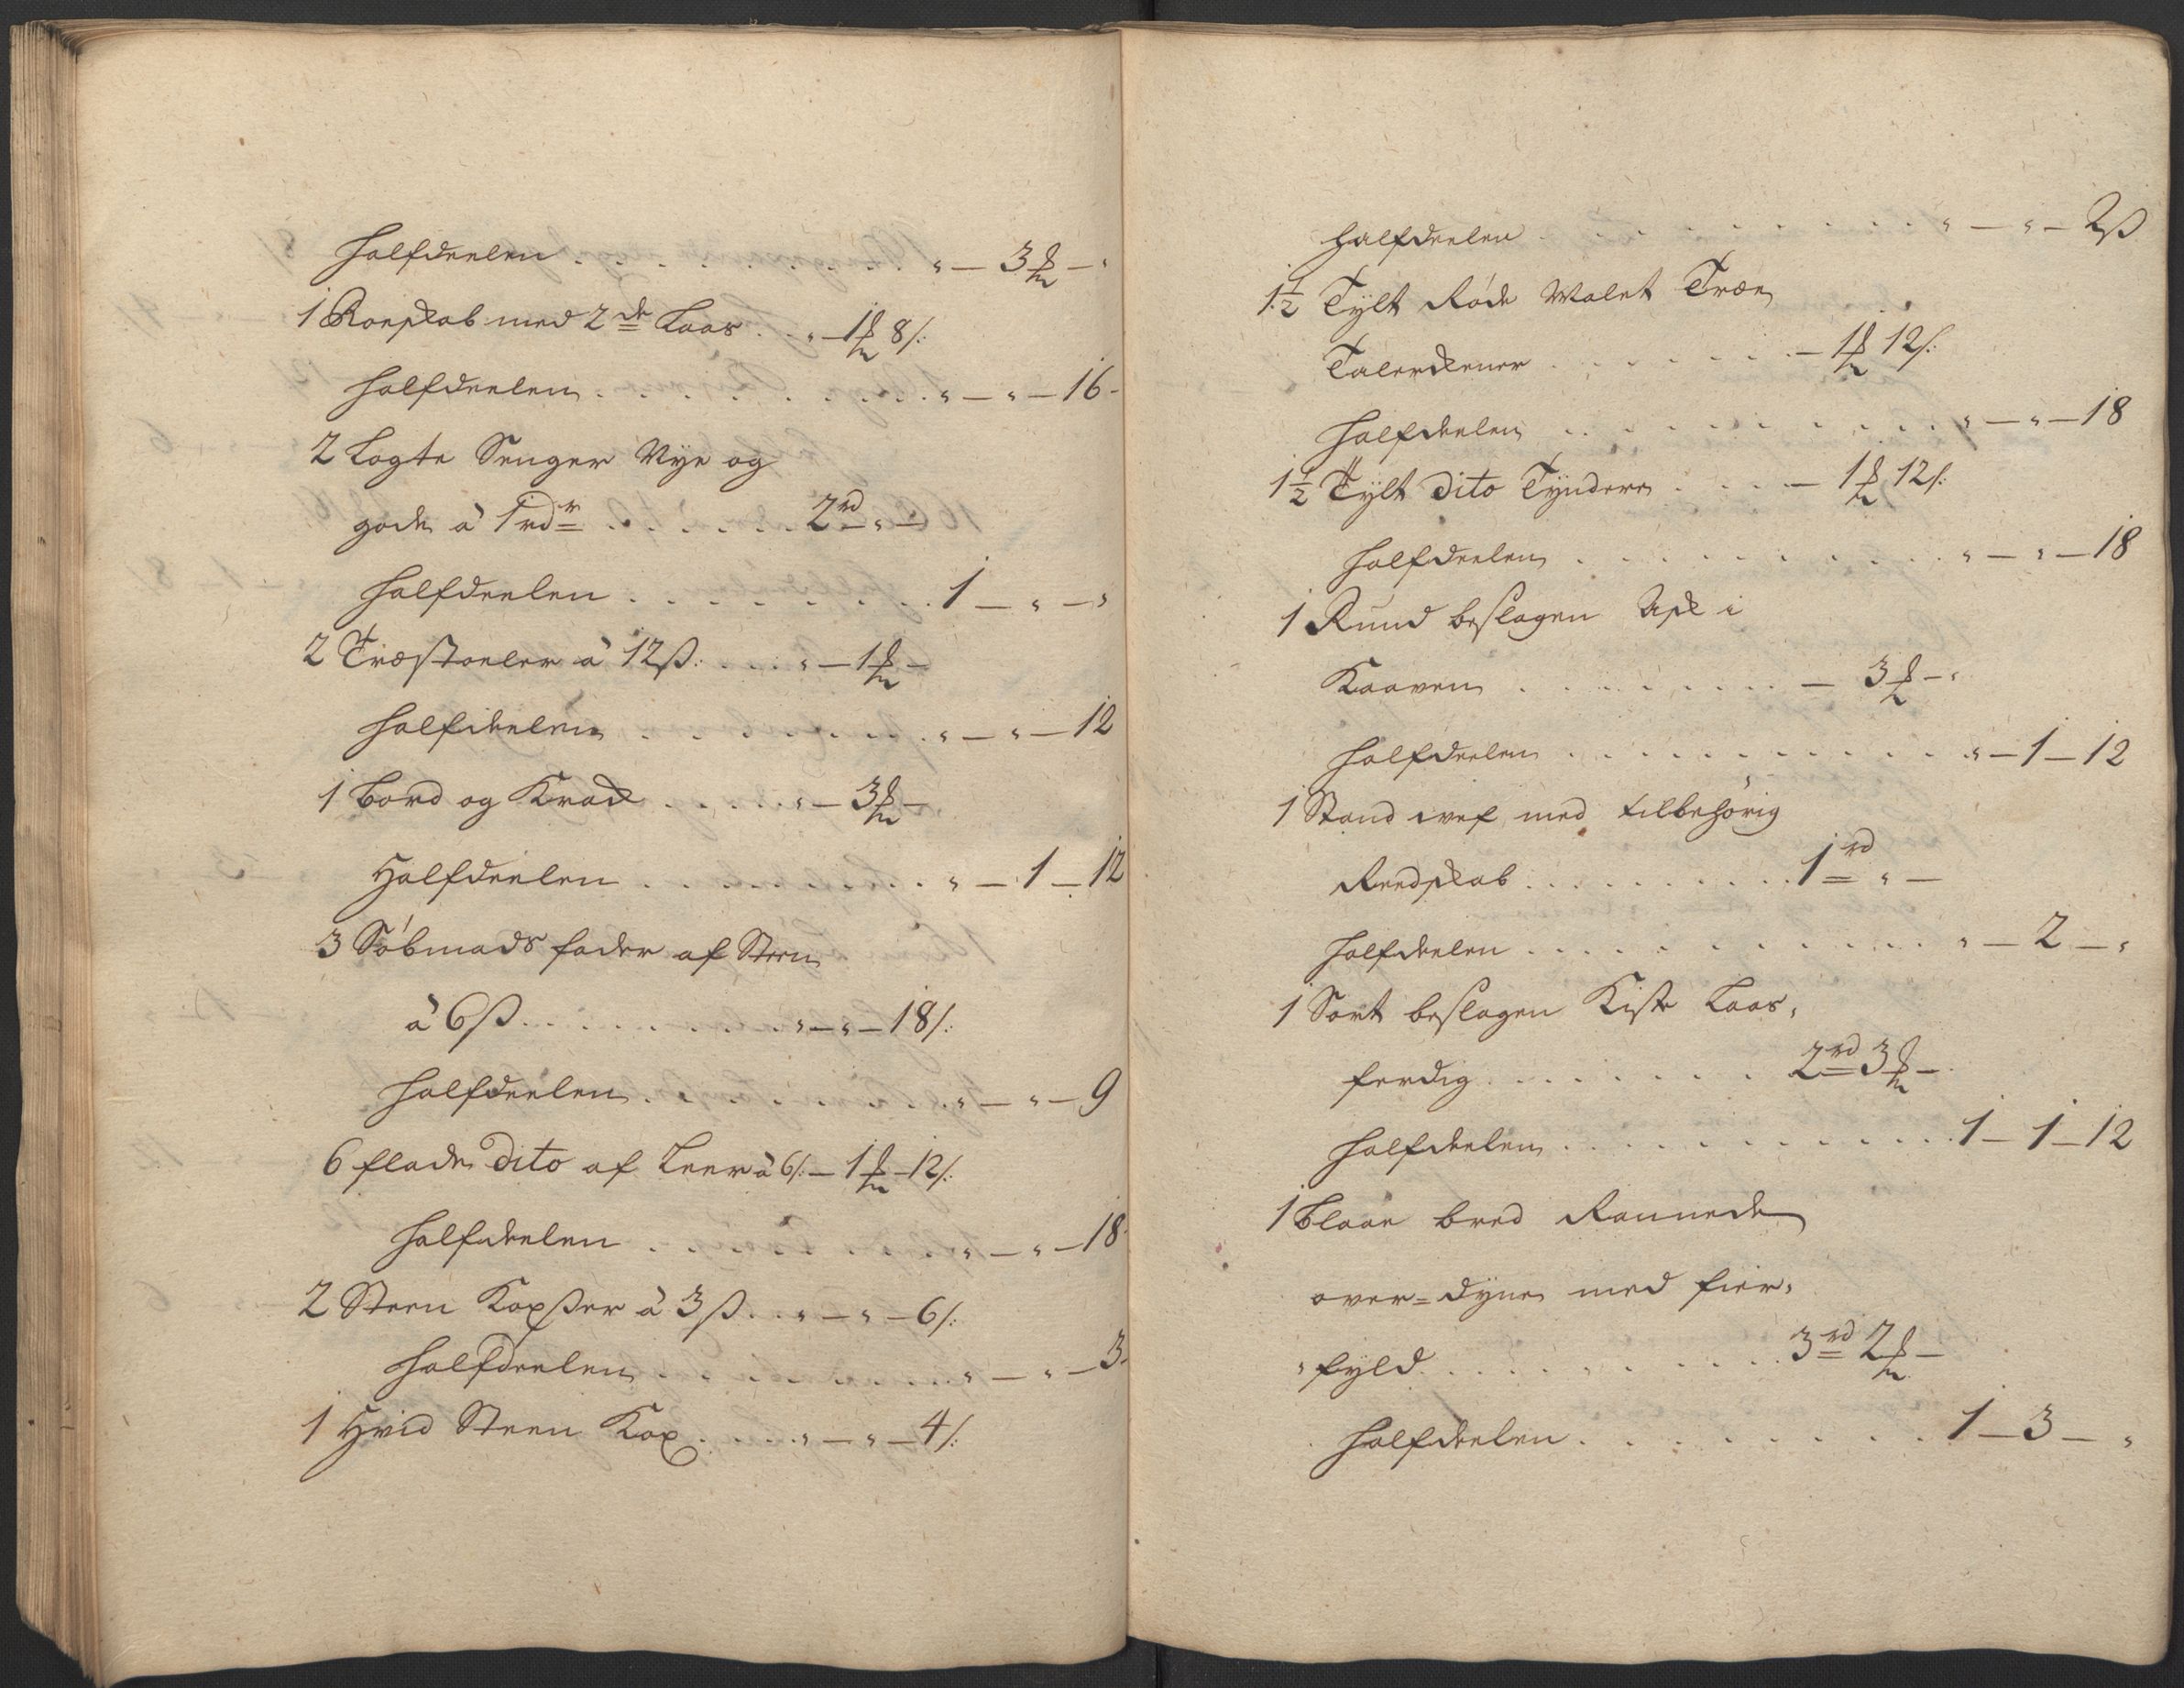 Halfdeelen . . . . . . . . . . " — 3 ₻ — "
1 Roeskab med 2de Laas . . " — 1 ₻ 8 s:
Halfdeelen . . . . . . . . . . " — " — 16 -
2 Lagte Senger Nye og
gode à 1 rdr . . . . . . . 2 rd " —
Halfdeelen . . . . . . . . . 1 — " — "
2 Træstoeler à 12 ß: . . . . " — 1 ₻ —
Halfdeelen . . . . . . . . . " — " — 12
1 Bord og Krak . . . . . " — 3 ₻ —
Halfdeelen . . . . . . . . . " — 1 — 12
3 Söbmads fader af Steen
à 6 ß . . . . . . . . . . " — " — 18 s:
Halfdeelen . . . . . . . . . " — " — 9
6 flade Dito af Leer à 6 s: — 1 ₻ — 12 s:
Halfdeelen . . . . . . . . . " — " — 18
2 Steen Kopper à 3 ß . . " — " — 6 s:
Halfdeelen . . . . . . . . . " — " — 3 -
1 Hvid Steen Kop . . . . " — " — 4 s:
Halfdeelen . . . . . . . . . . " — " — 2 ß
1 1/2 Tylt Røde Malet Træe
Talerkener . . . . . . . — 1 ₻ 12 s:
Halfdeelen . . . . . . . . . . " — " — 18
1 1/2 Tylt Dito Tyndere . . . — 1 ₻ 12 s:
Halfdeelen . . . . . . . . . . " — " — 18
1 Rund beslagen Ask i
Kaaven . . . . . . . . . — 3 ₻ — "
Halfdeelen . . . . . . . . . . " — 1 — 12
1 Stand wef med tilbehørig
Reedskab . . . . . . . . . 1 rd " —
Halfdeelen . . . . . . . . . . " — 2 — "
1 Sort beslagen Kiste Laas-
ferdig . . . . . . . . 2 rd 3 ₻ —
Halfdeelen . . . . . . . . . . 1 — 1 — 12
1 Blaae bred Rannede
over-dyne med fier-
fyld . . . . . . . . . 3 rd 2 ₻ —
Halfdeelen . . . . . . . . . 1 — 3 — "